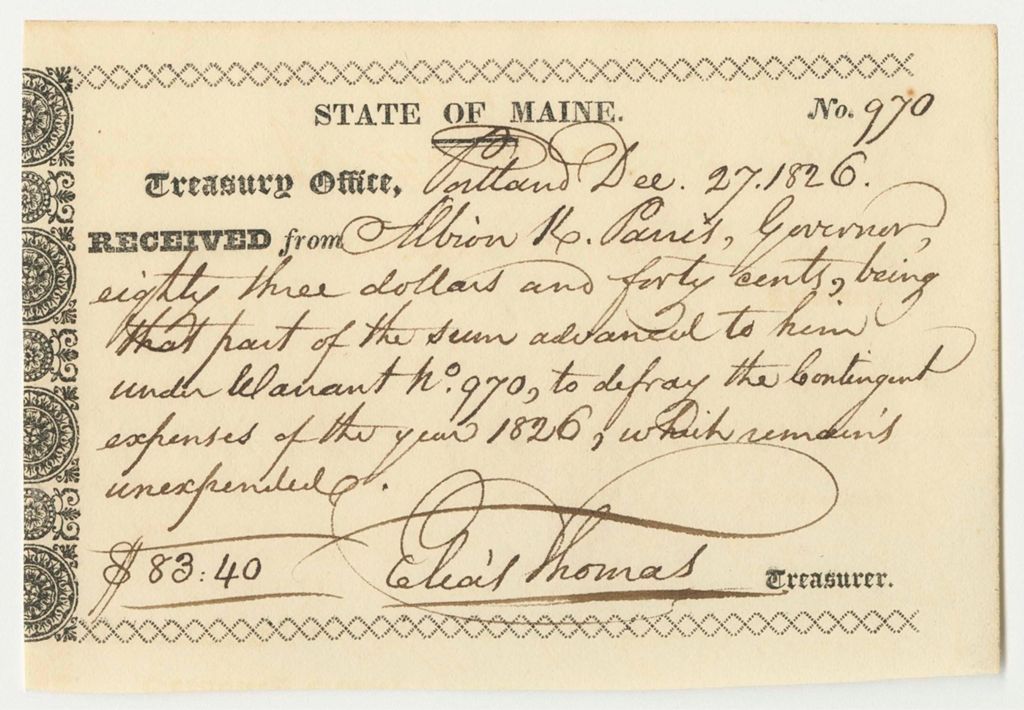 STATE OF MAINE.
No. 970
Treasury Office, Portland Dec. 27. 1826.
RECEIVED from Albion K. Parris, Governor,
eighty three dollars and forty cents, being
that part of the sum advanced to him
under Warrant No. 970, to defray the Contingent
expenses of the year 1826, which remains
unexpended.
$ 83:40 Elias Thomas Treasurer.